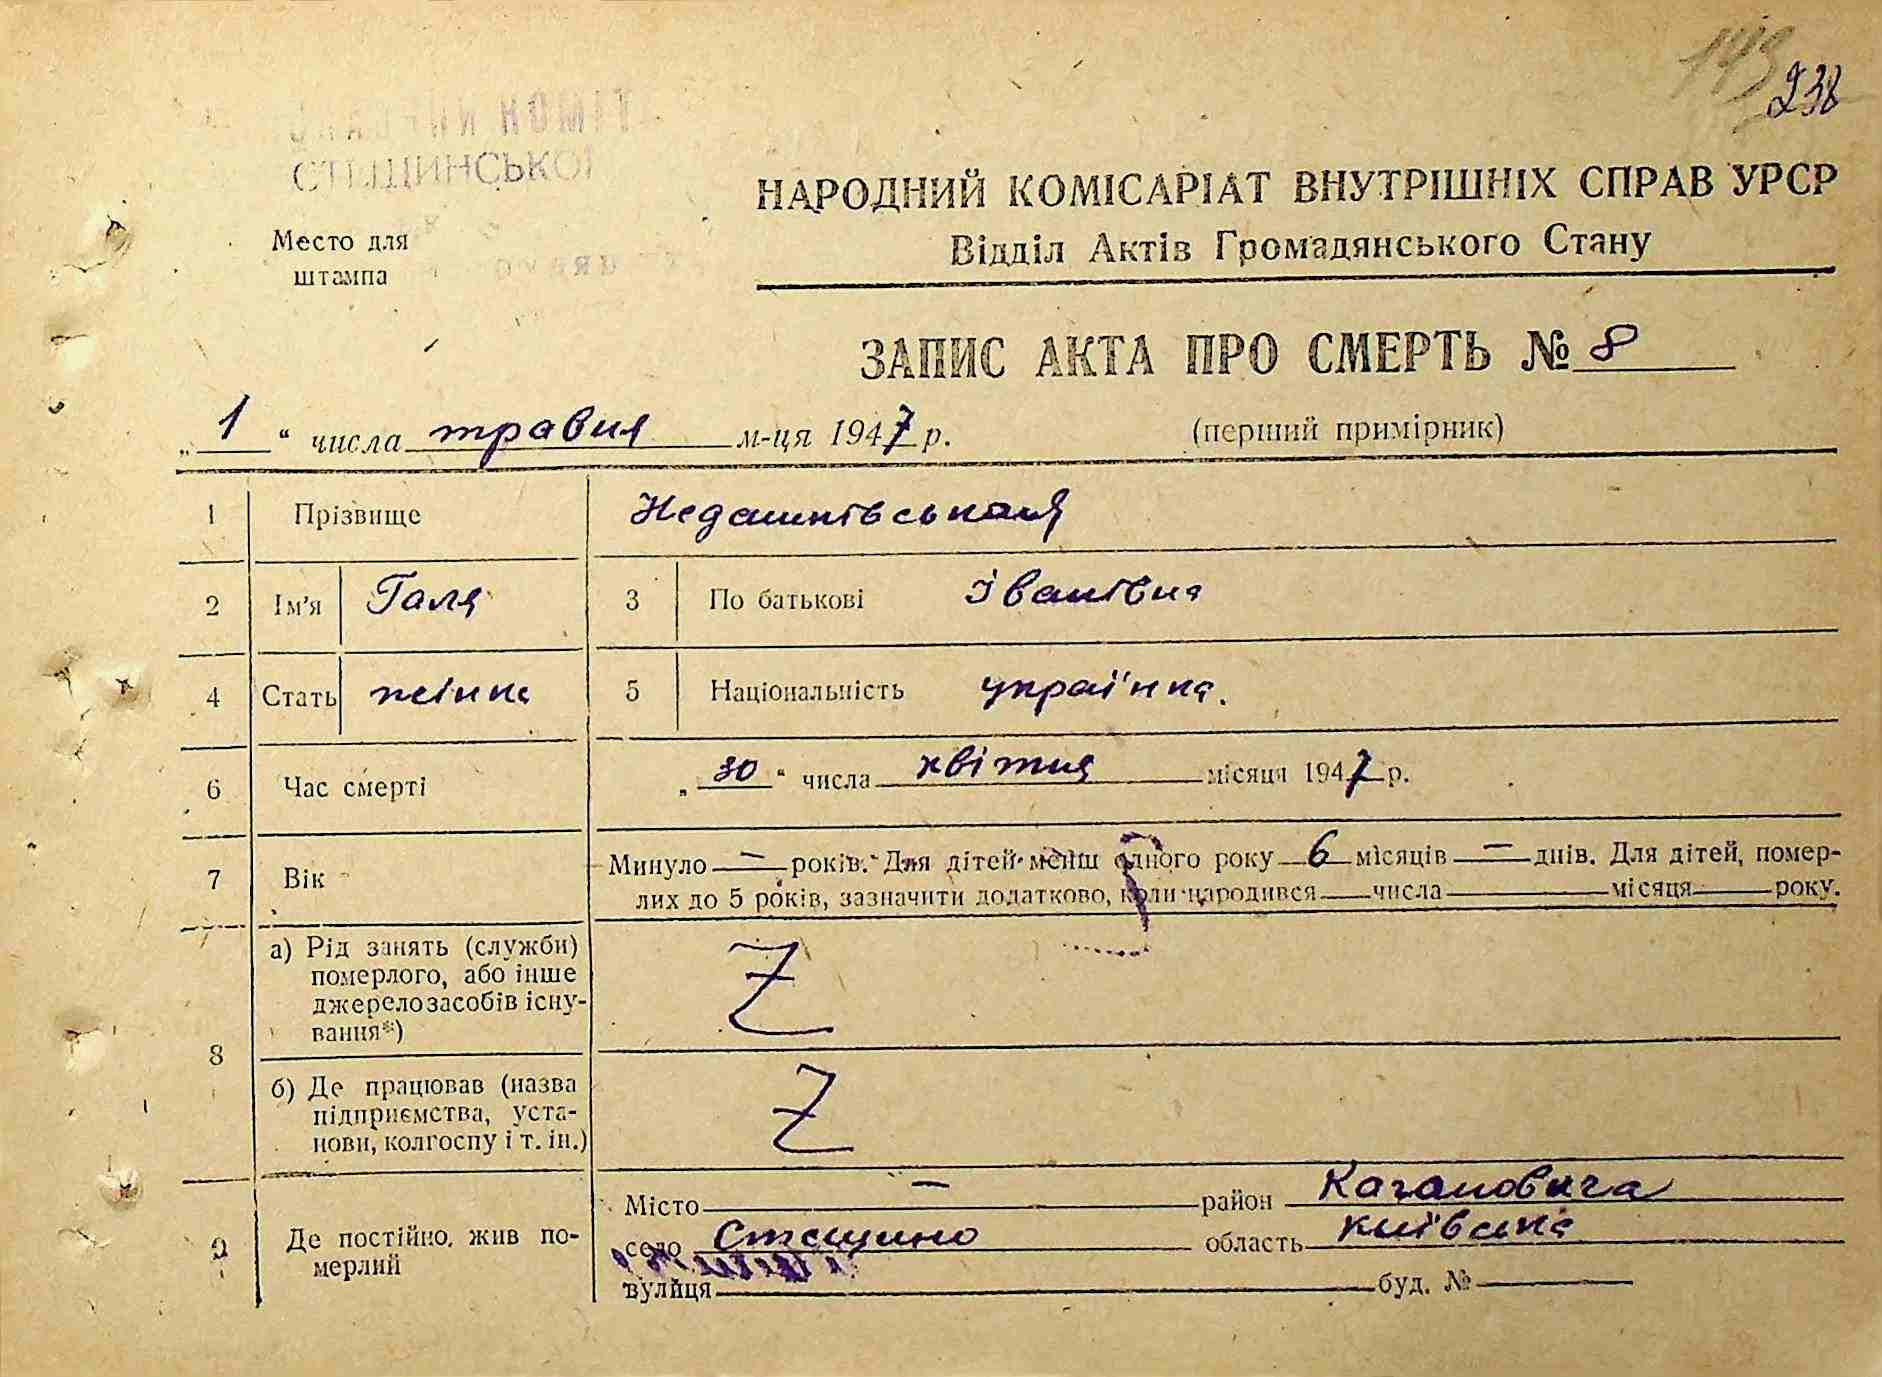 143
238
СТЕЩИНСЬКОЇ
НАРОДНИЙ КОМІСАРІАТ ВНУТРІШНІХ СПРАВ УРСР
Відділ Актів Громадянського Стану
Место для
штампа
ЗАПИС АКТА ПРО СМЕРТЬ № 8
„ 1 “ числа травня м-ця 1947 р. (перший примірник)
1 Прізвище Недашківська
2 Ім'я Галя 3 По батькові Іванівна
4 Стать жінка 5 Національність українка.
6 Час смерті „ 30 “ числа квітня місяця 1947 р.
7 Вік Минуло — років. Для дітей менш одного року 6 місяців — днів. Для дітей, помер-
лих до 5 років, зазначити додатково, коли народився числа місяця року.
8 а) Рід занять (служби)
померлого, або інше
джерело засобів існу-
вання*) Z
б) Де працював (назва
підприємства, уста-
нови, колгоспу і т. ін.) Z
9 Де постійно жив по-
мерлий
Місто — район Кагановича
село Стещино область київська
вулиця буд. №